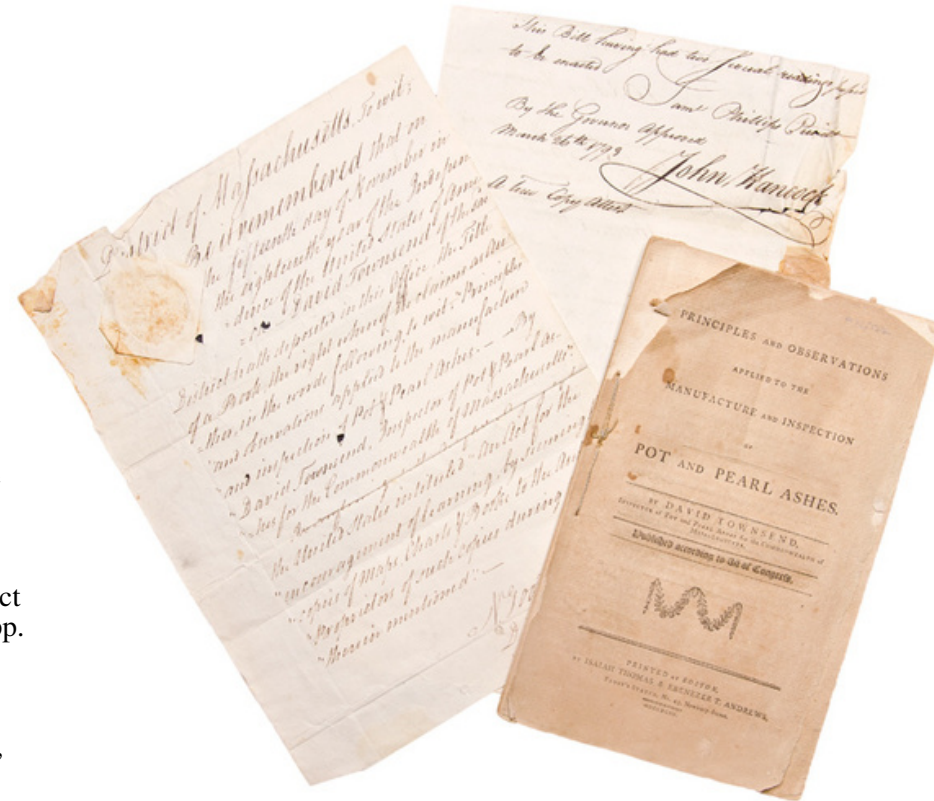 ct
op.
,
District of Massachusetts, To wit:
Be it remembered that on
the fifteenth day of November in
the eighteenth year of the Indepen
-dence of the United States of Amer
David Townsend of the sa
District hath deposited in this Office the Title
of a Book, the right whereof he claims as Au
thor, in the words following, to wit, "Principles
"and observations applied to the manufacture
"and inspection of Pot & Pearl Ashes. — By
"David Townsend, Inspector of Pot & Pearl As-
"hes for the Commonwealth of Massachusetts."
the United States intituled "An Act for the
"encouragement of learning, by securing
"copies of Maps, Charts & Books to the Au
"proprietors of such copies during
"therein mentioned:" —
This Bill having had two several readings passed
to be enacted
Saml Phillips
By the Governor Approved
March 26th 1793
John Hancock
A true Copy Attest
PRINCIPLES AND OBSERVATIONS
APPLIED TO THE
MANUFACTURE AND INSPECTION
OF
POT AND PEARL ASHES.
BY DAVID TOWNSEND,
INSPECTOR OF POT AND PEARL ASHES for the COMMONWEALTH of
MASSACHUSETTS.
Published according to Act of Congress.
PRINTED AT BOSTON,
BY ISAIAH THOMAS & EBENEZER T. ANDREWS,
FAUST'S STATUE, No. 45, Newbury Street.